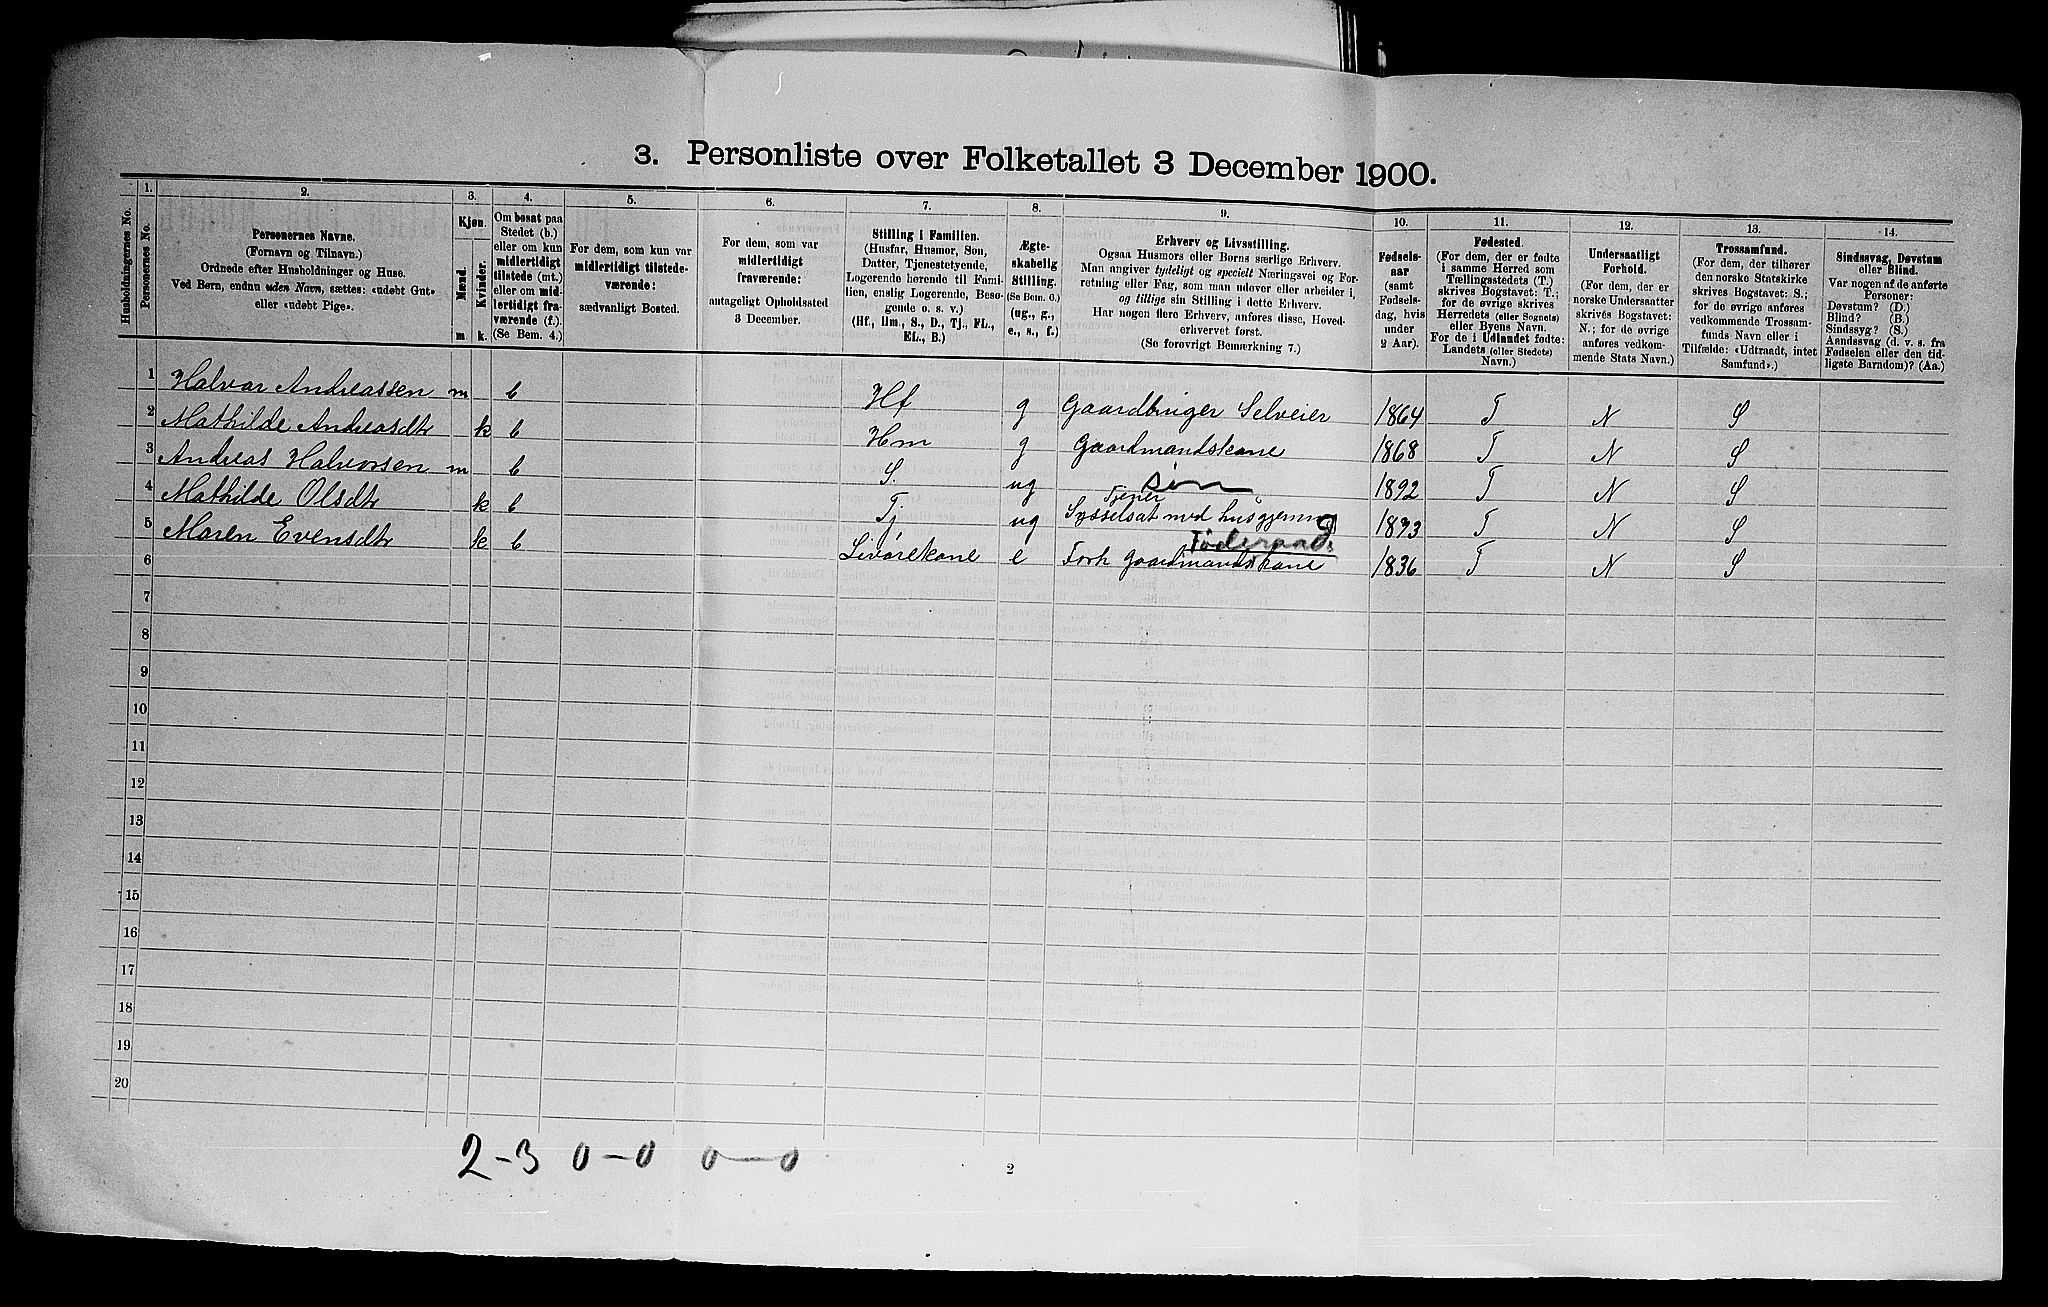 3. Personliste over Folketallet 3 December 1900.
Husholdningernes No.
1.
Personernes No.
2.
Personernes Navne.
(Fornavn og Tilnavn.)
Ordnede efter Husholdninger og Huse.
Ved Børn, endnu uden Navn, sættes: «udøbt Gut»
eller «udøbt Pige».
3.
Kjøn.
Mænd.
Kvinder.
m. k.
4.
Om bosat paa
Stedet (b.)
eller om kun
midlertidigt
tilstede (mt.)
eller om mid-
lertidigt fra-
værende (f.)
(Se Bem. 4.)
5.
For dem, som kun var
midlertidigt tilstede-
værende:
sædvanligt Bosted.
6.
For dem, som var
midlertidigt
fraværende:
antageligt Opholdssted
3 December.
7.
Stilling i Familien.
(Husfar, Husmor, Søn,
Datter, Tjenestetyende,
Logerende hørende til Fami-
lien, enslig Logerende, Besø-
gende o. s. v.)
(Hf., Hm., S., D., Tj., FL.,
EL., B.)
8.
Ægte-
skabelig
Stilling.
(Se Bem. 6.)
(ug., g.,
e., s., f.)
9.
Erhverv og Livsstilling.
Ogsaa Husmors eller Børns særlige Erhverv.
Man angiver tydeligt og specielt Næringsvei og For-
retning eller Fag, som man udøver eller arbeider i,
og tillige sin Stilling i dette Erhverv.
Har nogen flere Erhverv, anføres disse, Hoved-
erhvervet først.
(Se forøvrigt Bemærkning 7.)
10.
Fødsels-
aar
(samt
Fødsels-
dag, hvis
under
2 Aar).
11.
Fødested.
(For dem, der er fødte
i samme Herred som
Tællingsstedets (T.)
skrives Bogstavet: T.;
for de øvrige skrives
Herredets (eller Sognets)
eller Byens Navn.
For de i Udlandet fødte:
Landets (eller Stedets)
Navn.)
12.
Undersaatligt
Forhold.
(For dem, der er
norske Undersaatter
skrives Bogstavet:
N.; for de øvrige
anføres vedkom-
mende Stats Navn.)
13.
Trossamfund.
(For dem, der tilhører
den norske Statskirke
skrives Bogstavet: S.;
for de øvrige anføres
vedkommende Trossam-
funds Navn eller i
Tilfælde: «Udtraadt, intet
Samfund».)
14.
Sindssvag, Døvstum
eller Blind.
Var nogen af de anførte
Personer:
Døvstum? (D.)
Blind? (B.)
Sindssyg? (S.)
Aandssvag (d. v. s. fra
Fødselen eller den tid-
ligste Barndom)? (Aa.)
1 Halvar Andreassen m b Hf g Gaardbruger Selveier 1864 T N S
2 Mathilde Andreasdtr k b Hm g Gaardmandskone 1868 T N S
3 Andreas Halvorsen m b S. ug Søn 1892 T N S
Tjener
4 Mathilde Olsdtr k b Tj ug Sysselsat med husgjerning 1893 T N S
Föderaads
5 Maren Evensdtr k b Livørekone e Forh gaardmandskone 1836 T N S
6
7
8
9
10
11
12
13
14
15
16
17
18
19
20
2-3 0-0 0-0
2